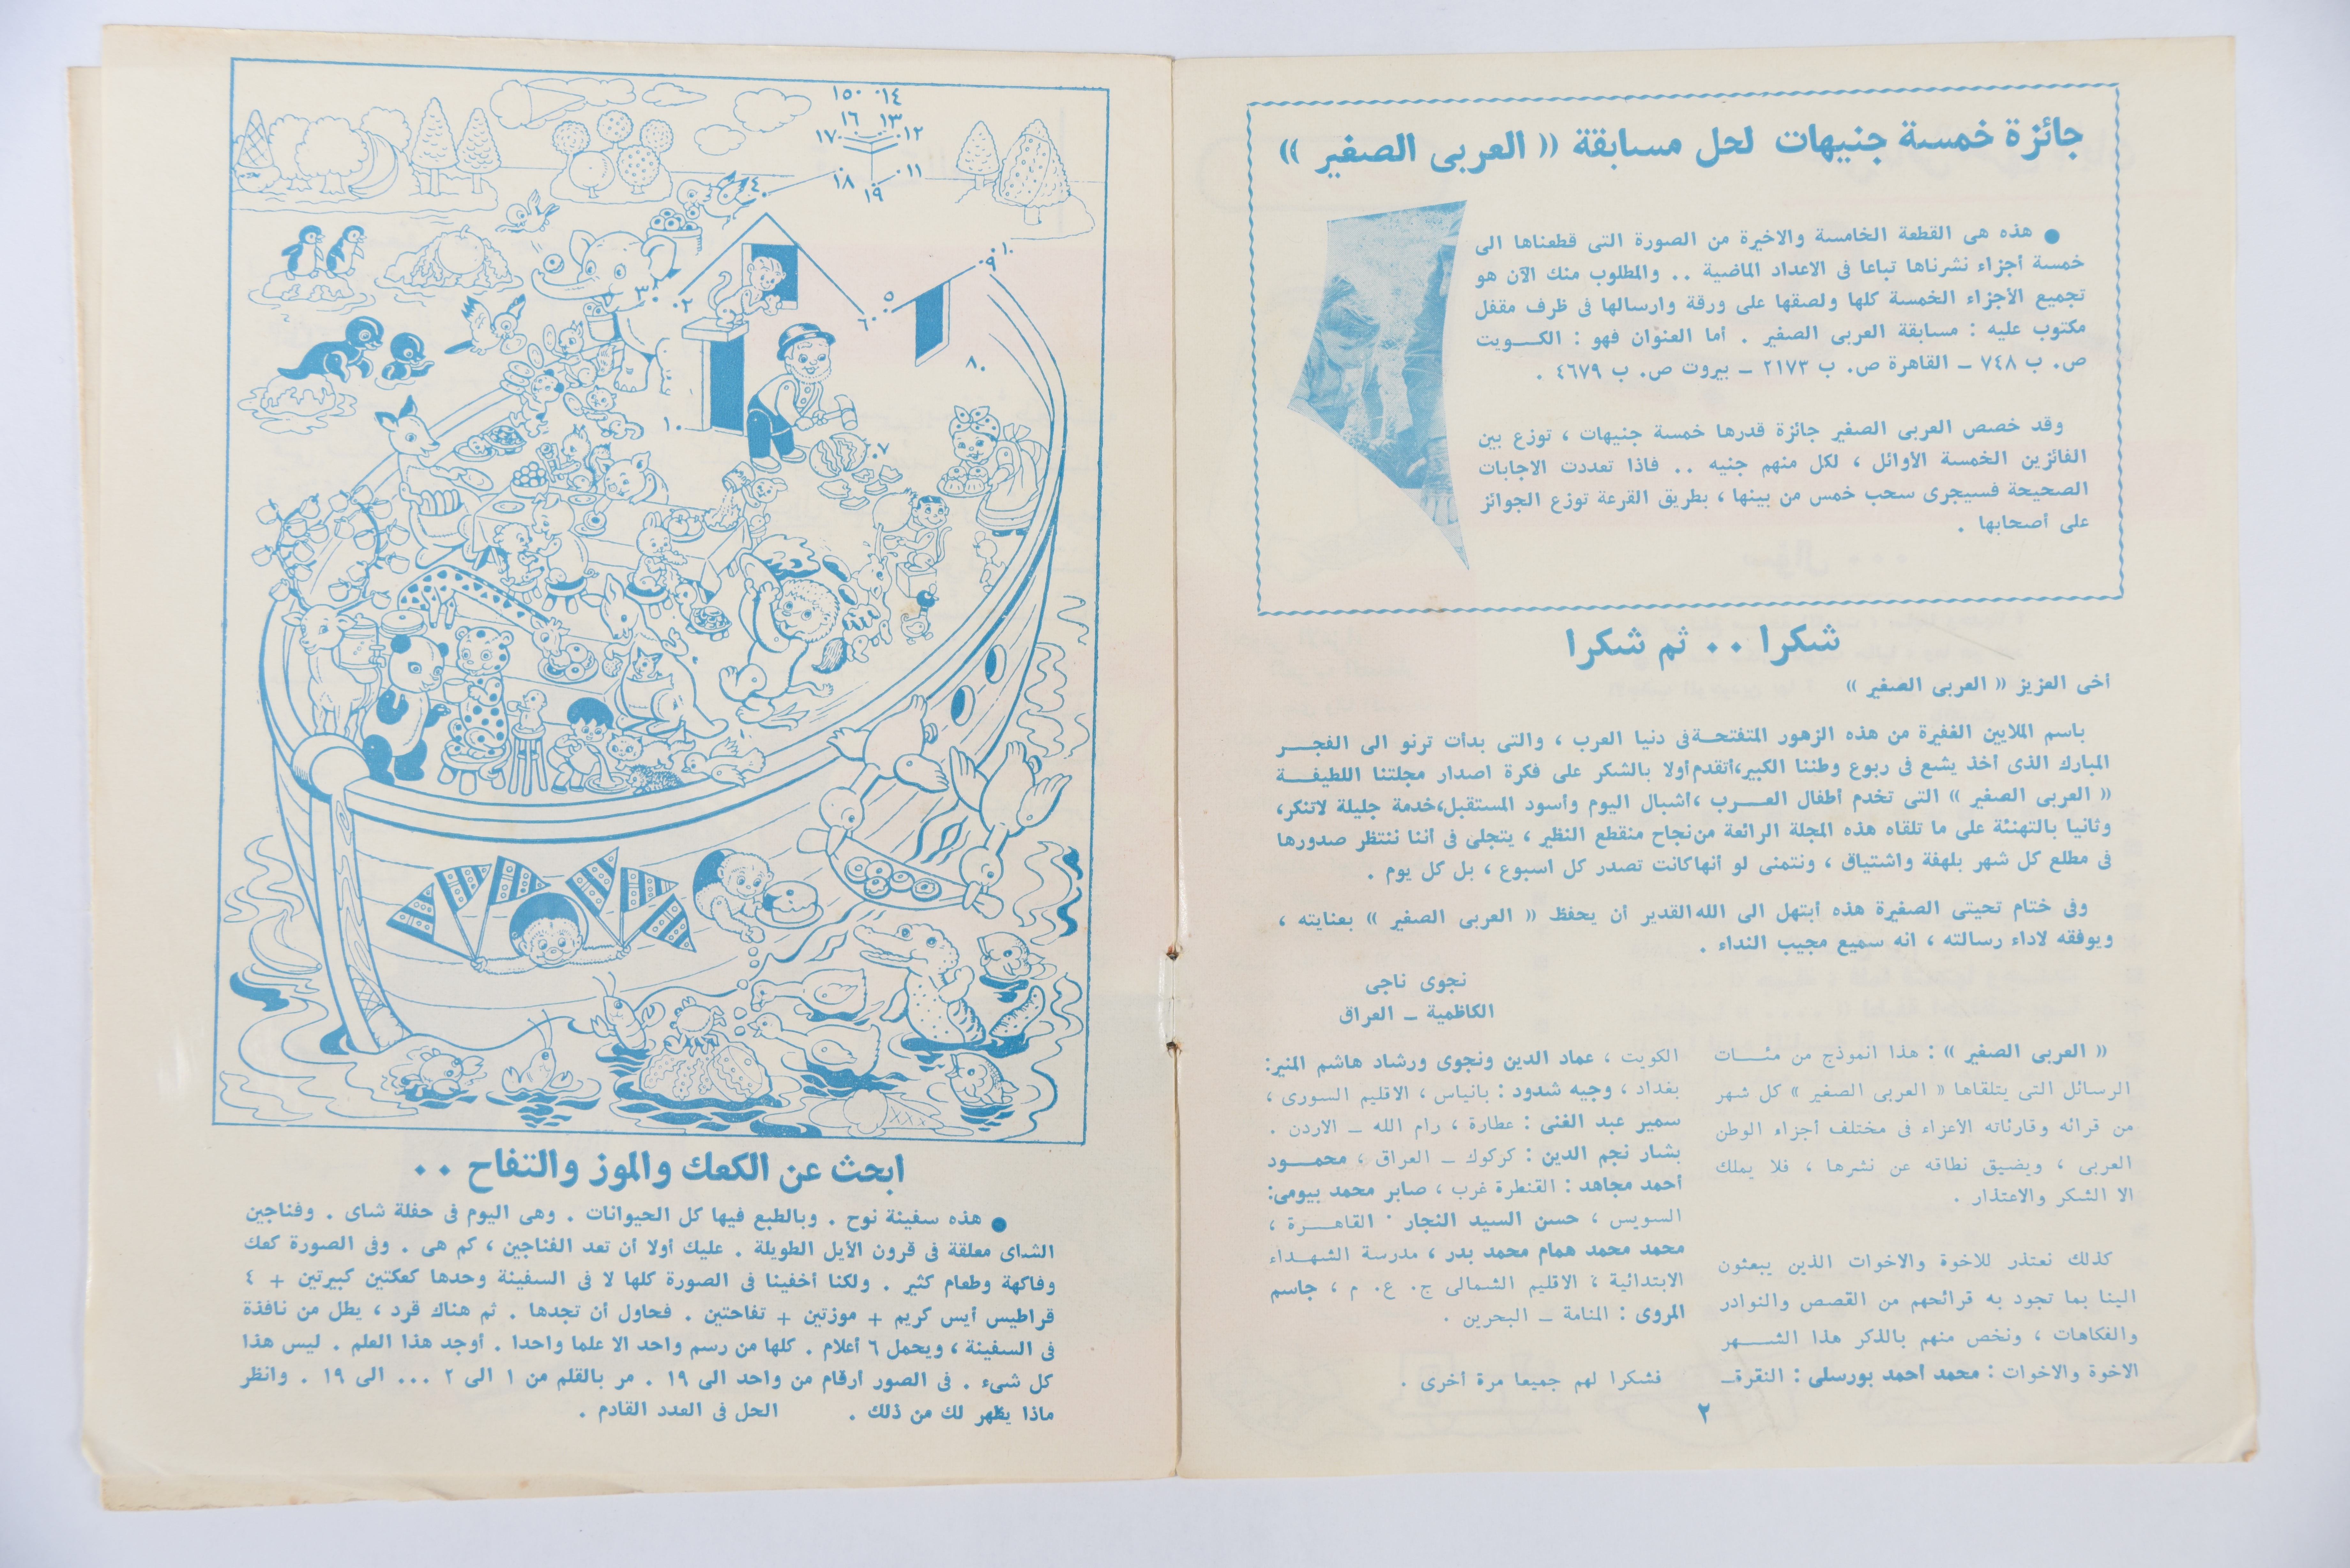 جائزة خمسة جنيهات لحل مسابقة « العربى الصغير »
● هذه هى القطعة الخامسة والاخيرة من الصورة التى قطعناها الى
خمسة أجزاء نشرناها تباعا فى الاعداد الماضية .. والمطلوب منك الآن هو
تجميع الأجزاء الخمسة كلها ولصقها على ورقة وارسالها فى ظرف مقفل
مكتوب عليه : مسابقة العربى الصغير . أما العنوان فهو : الكــويت
ص. ب ٧٤٨ – القاهرة ص. ب ٢١٧٣ – بيروت ص. ب ٤٦٧٩ .
وقد خصص العربى الصغير جائزة قدرها خمسة جنيهات ، توزع بين
الفائزين الخمسة الأوائل ، لكل منهم جنيه .. فاذا تعددت الاجابات
الصحيحة فسيجرى سحب خمس من بينها ، بطريق القرعة توزع الجوائز
على أصحابها .
شكرا .. ثم شكرا
أخى العزيز « العربى الصغير »
باسم الملايين الغفيرة من هذه الزهور المتفتحـة فى دنيا العرب ، والتى بدأت ترنو الى الفجــر
المبارك الذى أخذ يشع فى ربوع وطننا الكبير،أتقدم أولا بالشكر على فكرة اصدار مجلتنا اللطيفــة
« العربى الصغير » التى تخدم أطفال العــرب ،أشبال اليوم وأسود المستقبل،خدمة جليلة لاتنكر،
وثانيا بالتهنئة على ما تلقاه هذه المجلة الرائعة من نجاح منقطع النظير ، يتجلى فى أننا ننتظر صدورها
فى مطلع كل شهر بلهفة واشتياق ، ونتمنى لو أنها كانت تصدر كل اسبوع ، بل كل يوم .
وفى ختام تحيتى الصغيرة هذه أبتهل الى الله القدير أن يحفظ « العربى الصغير » بعنايته ،
ويوفقه لاداء رسالته ، انه سميع مجيب النداء .
نجوى ناجى
الكاظمية – العراق
« العربى الصغير » : هذا انموذج من مئــات
الرسائل التى يتلقاها « العربى الصغير » كل شهر
من قرائه وقارئاته الأعزاء فى مختلف أجزاء الوطن
العربى ، ويضيق نطاقه عن نشرها ، فلا يملك
الا الشكر والاعتذار .
كذلك نعتذر للاخوة والاخوات الذين يبعثون
الينا بما تجود به قرائحهم من القصص والنوادر
والفكاهات ، ونخص منهم بالذكر هذا الشــهر
الاخوة والاخوات : محمد أحمد بورسلى : النقرة–
الكويت ، عماد الدين ونجوى ورشاد هاشم المنير:
بغداد ، وجيه شدود : بانياس ، الاقليم السورى ،
سمير عبد الغنى : عطارة ، رام الله – الاردن .
بشار نجم الدين : كركوك – العراق ، محمــود
أحمد مجاهد : القنطرة غرب ، صابر محمد بيومى:
السويس ، حسن السيد النجار . القاهــرة ،
محمد محمد همام محمد بدر ، مدرسة الشهـداء
الابتدائية ، الاقليم الشمالى ج. ع. م ، جاسم
المروى : المنامة – البحرين .
فشكرا لهم جميعا مرة أخرى .
٢
١٥ ١٤
١٦ ١٣
١٧ ١٢
١٨ ١١
١٩
٤
١٠
٩
٣
٢
٥
٦
٨
١
٧
ابحث عن الكعك والموز والتفاح ..
● هذه سفينة نوح . وبالطبع فيها كل الحيوانات . وهى اليوم فى حفلة شاى . وفناجين
الشاى معلقة فى قرون الأيل الطويلة . عليك أولا أن تعد الفناجين ، كم هى . وفى الصورة كعك
وفاكهة وطعام كثير . ولكنا أخفينا فى الصورة كلها لا فى السفينة وحدها كعكتين كبيرتين + ٤
قراطيس أيس كريم + موزتين + تفاحتين . فحاول أن تجدها . ثم هناك قرد ، يطل من نافذة
فى السفينة ، ويحمل ٦ أعلام . كلها من رسم واحد الا علما واحدا . أوجد هذا العلم . ليس هذا
كل شىء . فى الصور أرقام من واحد الى ١٩ . مر بالقلم من ١ الى ٢ ... الى ١٩ . وانظر
ماذا يظهر لك من ذلك . الحل فى العدد القادم .